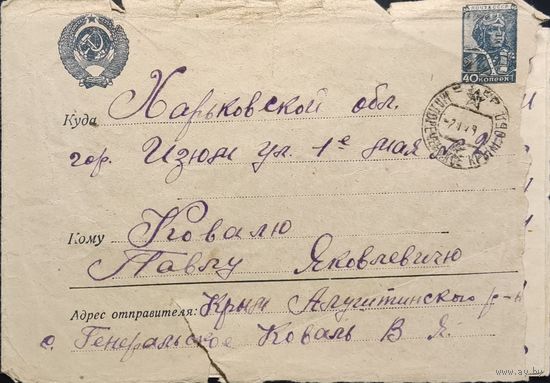 ПОЧТА СССР
40 КОПЕЕК
Куда Харьковской обл.
гор. Изюм ул. 1е мая
Кому Ковалю
Павлу Яковлевичю
Адрес отправителя: Крым Алуштинского р-н
с. Генеральское Коваль В Я.
www.ay.by